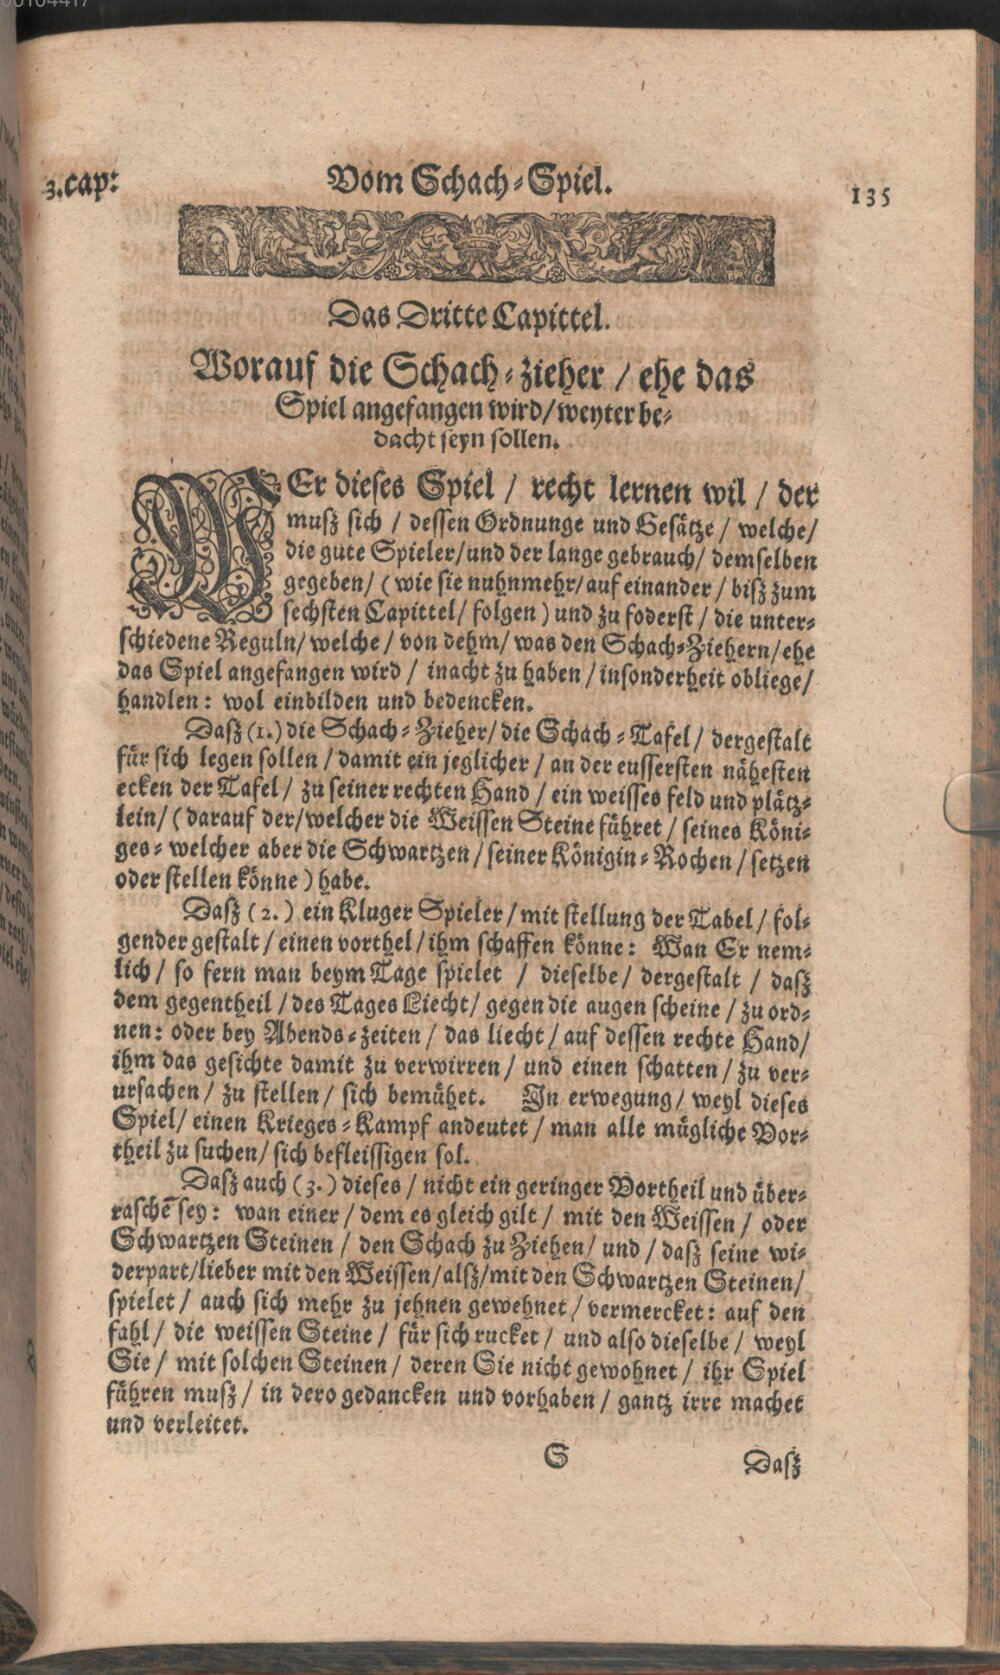 00104417
3.cap:
Vom Schach-Spiel.
135
Das Dritte Capittel.
Worauf die Schach-zieher / ehe das
Spiel angefangen wird/ weyter be-
dacht seyn sollen.
WEr dieses Spiel / recht lernen wil / der
musz sich / dessen Ordnunge und Gesätze / welche/
die gute Spieler/ und der lange gebrauch/ demselben
gegeben/ ( wie sie nuhnmehr/ auf einander / bisz zum
sechsten Capittel/ folgen ) und zu foderst / die unter-
schiedene Reguln/ welche / von dehm/ was den Schach-Ziehern/ ehe
das Spiel angefangen wird / inacht zu haben / insonderheit obliege/
handlen: wol einbilden und bedencken.
Dasz (1.) die Schach-Zieher/ die Schach-Tafel/ dergestalt
für sich legen sollen / damit ein jeglicher / an der eussersten nähesten
ecken der Tafel / zu seiner rechten Hand / ein weisses feld und plätz-
lein/ ( darauf der/ welcher die Weissen Steine führet / seines Köni-
ges- welcher aber die Schwartzen / seiner Königin-Rochen / setzen
oder stellen könne ) habe.
Dasz (2.) ein Kluger Spieler / mit stellung der Tabel / fol-
gender gestalt / einen vorthel / ihm schaffen könne: Wan Er nem-
lich / so fern man beym Tage spielet / dieselbe / dergestalt / dasz
dem gegentheil / des Tages Liecht/ gegen die augen scheine / zu ord-
nen: oder bey Abends-zeiten / das liecht / auf dessen rechte Hand/
ihm das gesichte damit zu verwirren / und einen schatten / zu ver-
ursachen / zu stellen / sich bemühet. In erwegung / weyl dieses
Spiel/ einen Krieges-Kampf andeutet / man alle mügliche Vor-
theil zu suchen/ sich befleissigen sol.
Dasz auch (3.) dieses / nicht ein geringer Vortheil und über-
raschē sey: wan einer / dem es gleich gilt / mit den Weissen / oder
Schwartzen Steinen / den Schach zu Ziehen/ und / dasz seine wi-
derpart/ lieber mit den Weissen/ alsz/ mit den Schwartzen Steinen/
spielet / auch sich mehr zu jehnen gewehnet / vermercket: auf den
fahl / die weissen Steine / für sich rucket / und also dieselbe / weyl
Sie / mit solchen Steinen / deren Sie nicht gewohnet / ihr Spiel
führen musz / in dero gedancken und vorhaben / gantz irre machet
und verleitet.
S
Dasz